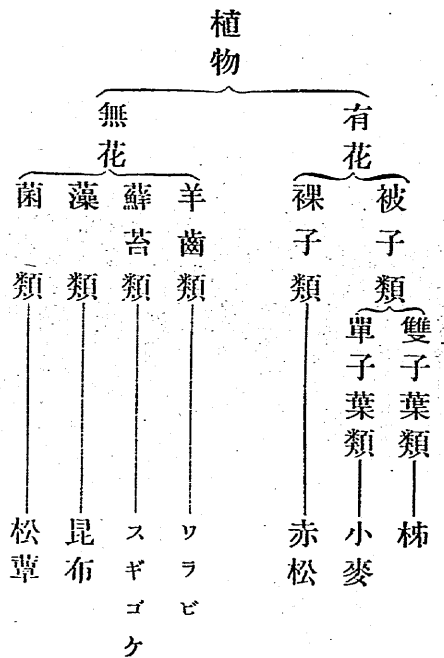 植物
有花
被子類
雙子葉類
柹
單子葉類
小麥
裸子類
赤松
無花
羊齒類
ワラビ
蘚苔類
スギゴケ
藻類
昆布
菌類
松蕈